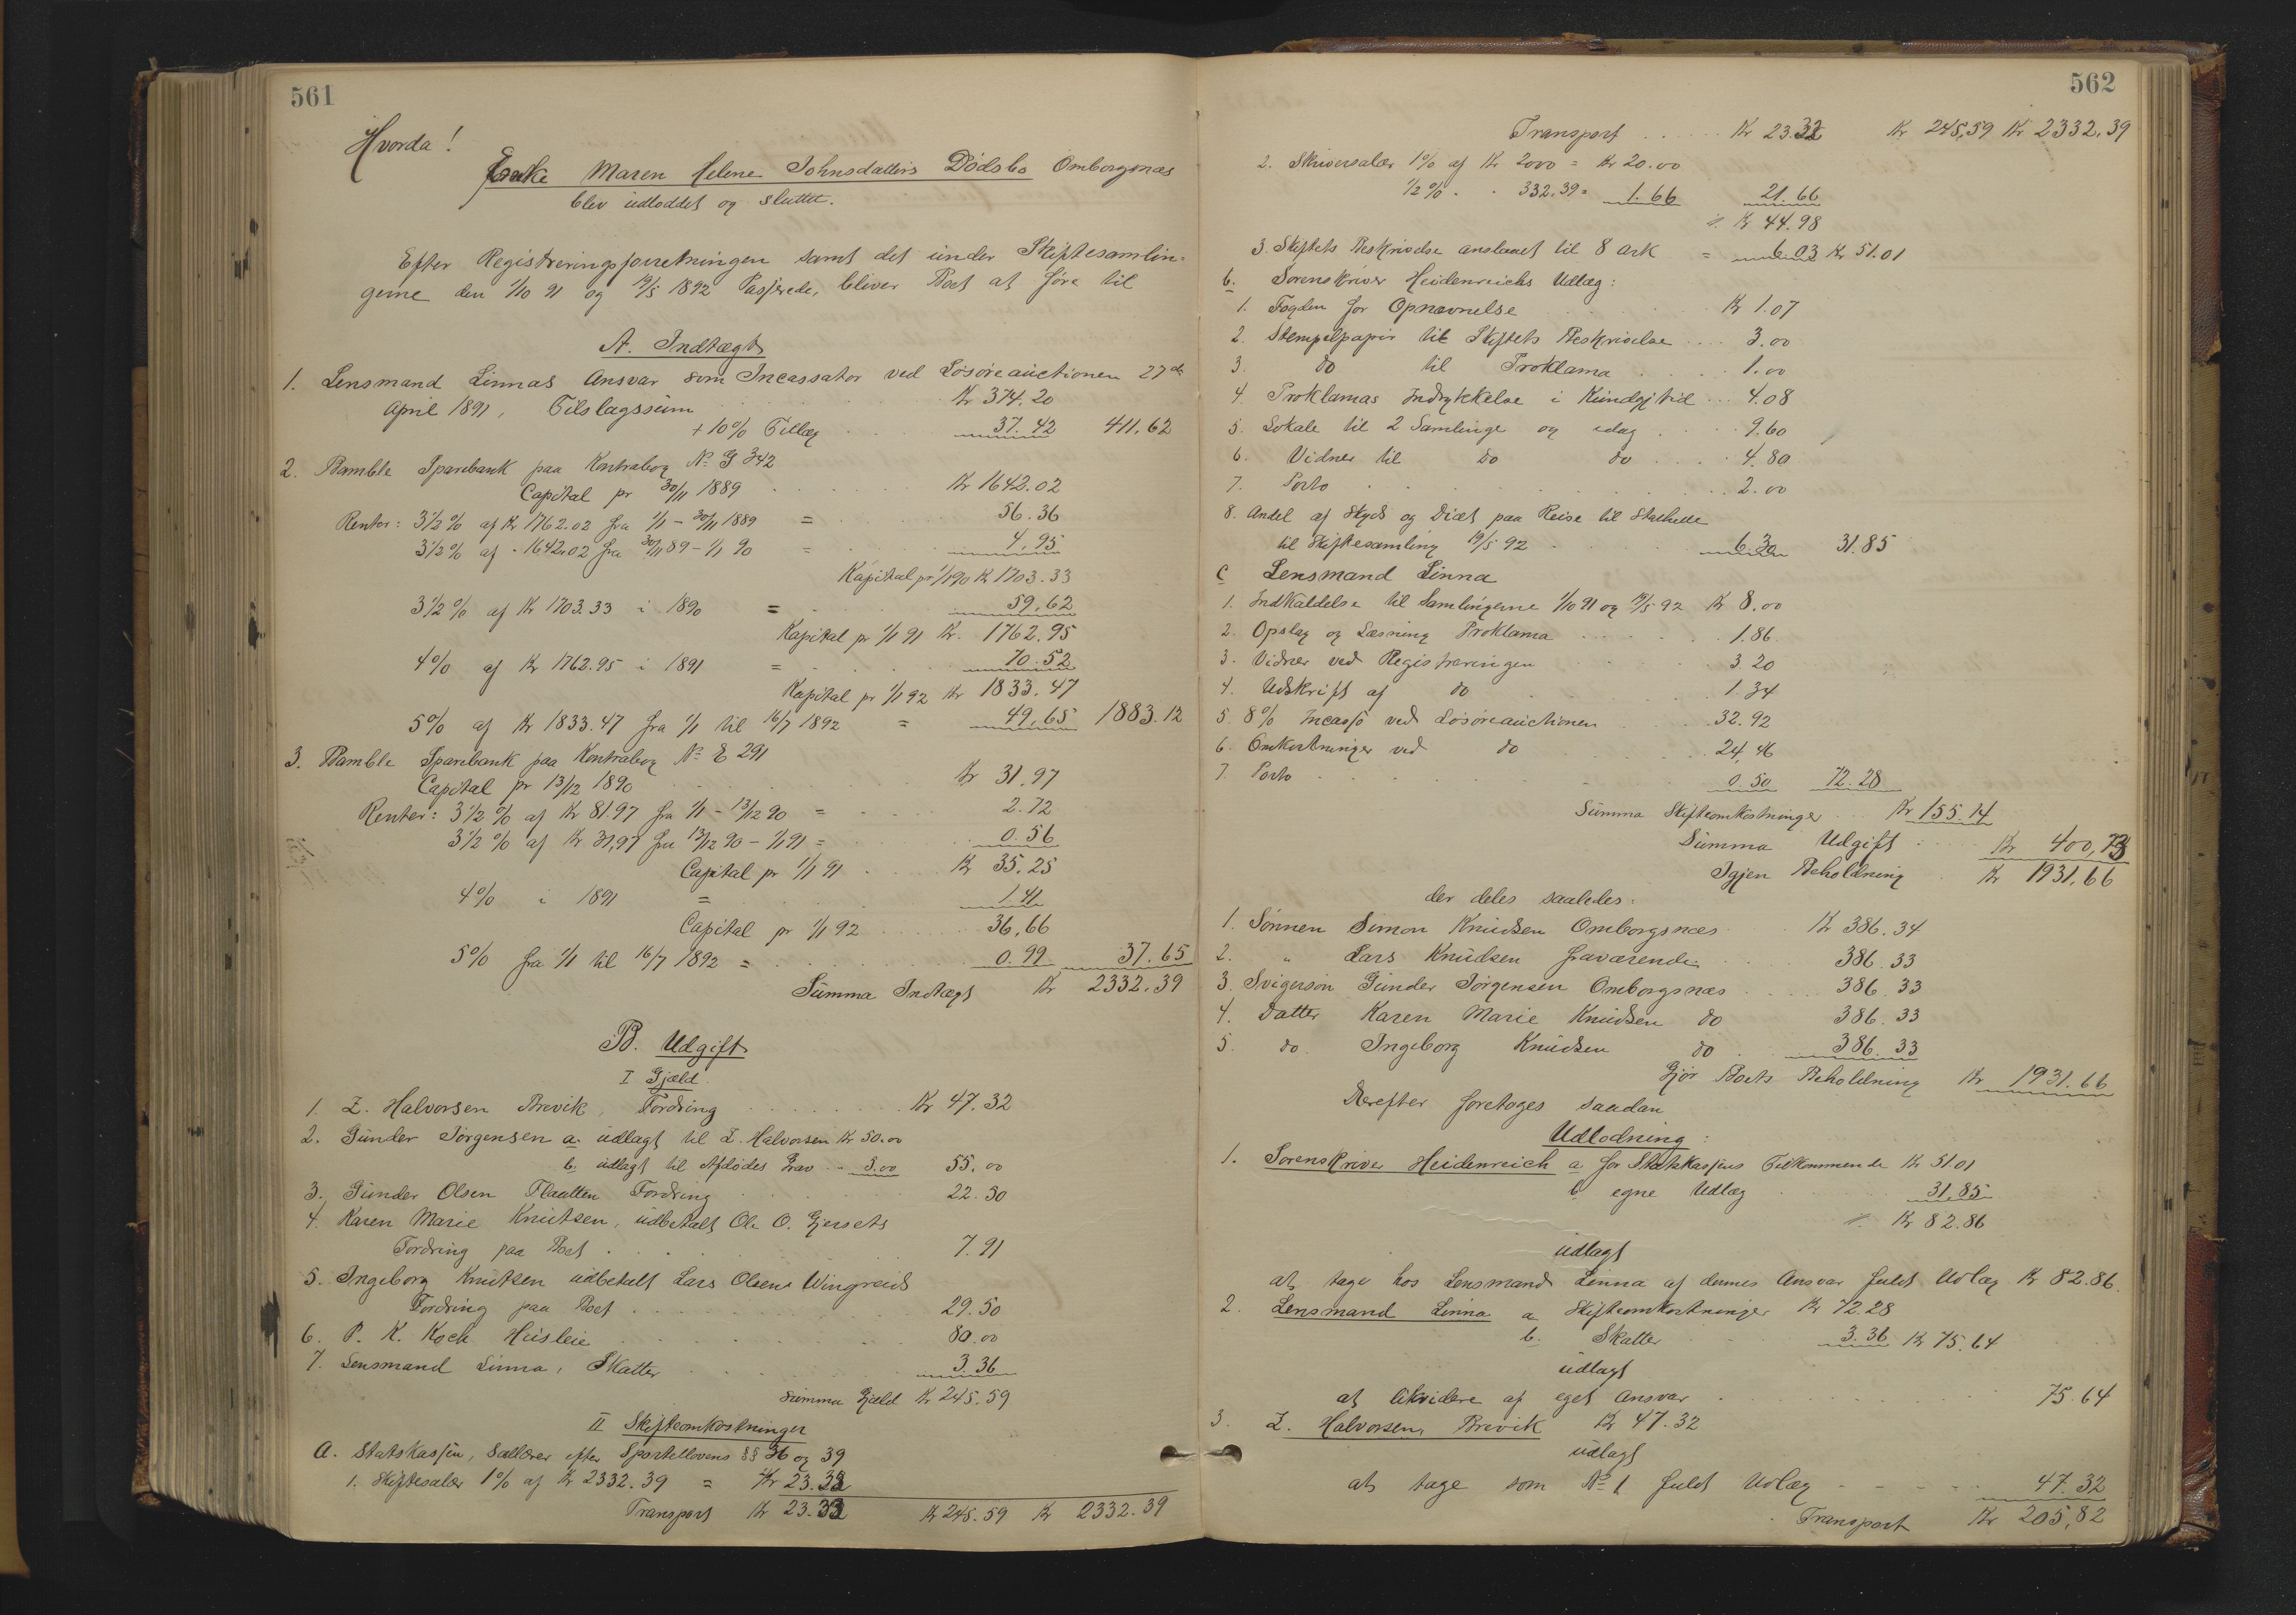 561
Hvorda!
Enke Maren Helene Johnsdatters Dødsbo Omborgsnæs
blev udloddet og sluttet.
Efter Registreringsforretningen samt det under Skiftesamlin-
gerne den 1/10 91 og 19/5 1892 Passerede, bliver Boet at føre til
A. Indtægt
1. Lensmand Linnas Ansvar som Incassator ved Løsøreauctionen 27de
April 1891, Tilslagssum Kr 374.20
+ 10% Tillæg 37.42 411,62
2. Bamble Sparebank paa Kontrabog No G 342
Capital pr 30/11 1889 Kr 1642.02
Renter: 3 1/2 % af Kr 1762.02 fra 1/1 - 30/11 1889 = 56.36
3 1/2 % af - 1642.02 fra 30/11 89 - 1/1 90 = 4,95
Kapital pr 1/1 90 Kr 1703.33
3 1/2 % af Kr 1703.33 i 1890 = 59,62
Kapital pr 1/1 91 Kr. 1762.95
4% af Kr 1762.95 i 1891 = 70.52
Kapital pr 1/1 92 Kr 1833.47
5% af Kr 1833.47 fra 1/1 til 16/7 1892 = 49,65 1883.12
3. Bamble Sparebank paa Kontrabog No E 291
Capital pr 13/12 1890 Kr 31.97
Renter: 3 1/2 % af Kr 81.97 fra 1/1 - 13/12 90 = 2.72
3 1/2 % af Kr 31,97 fra 13/12 90 - 1/1 91 = 0.56
Capital pr 1/1 91 Kr 35.25
4% i 1891 = 1.41
Capital pr 1/1 92 36,66
5% fra 1/1 til 16/7 1892 = 0.99 37.65
Summa Indtægt Kr 2332.39
B. Udgift
I Gjæld.
1. Z. Halvorsen Brevik, Fordring Kr 47.32
2. Gunder Jørgensen a. udlagt til Z. Halvorsen Kr 50.00
b. udlagt til Afdødes Grav - 5.00 55.00
3. Gunder Olsen Flaatten Fordring 22.50
4. Karen Marie Knutsen, udbetalt Ole O. Gjersets
Fordring paa Boet 7.91
5. Ingeborg Knutsen udbetalt Lars Olsens Wingreids
Fordring paa Boet 29.50
6. P. K. Koch Husleie 80.00
7. Lensmand Linna, Skatter 3.36
Summa Gjæld Kr 245.59
II Skifteomkostninger
a. Statskassen, Sallærer efter Sportellovens §§ 36 og 39
1. Skiftesalær 1% af Kr 2332.39 = Kr 23.32
Transport Kr 23.32 Kr 245.59 Kr 2332.39
562
Transport Kr 23.32 Kr 245,59 Kr 2332,39
2. Skriversalær 1% af Kr 2000 = Kr 20.00
1/2 % - - 332.39 = 1.66 21.66
Kr 44.98
3. Skiftets Beskrivelse anslaaet til 8 Ark = 6.03 Kr 51.01
b. Sorenskriver Heidenreichs Udlæg:
1. Fogden for Opnævnelse Kr 1.07
2. Stempelpapir til Skiftets Beskrivelse 3.00
3. do til Proklama 1.00
4. Proklamas Indrykkelse i Kundgjtid 4.08
5. Lokale til 2 Samlinge og idag 9.60
6. Vidner til do do 4.80
7. Porto 2.00
8. Andel af Skyds og Diæt paa Reise til Stathelle
til Skiftesamling 19/5 92 6.30 31.85
c Lensmand Linna
1. Indkaldelse til Samlingerne 1/10 91 og 19/5 92 Kr 8.00
2. Opslag og Læsning Proklama 1.86
3. Vidner ved Registreringen 3.20
4. Udskrift af do 1.34
5. 8% Incasso ved Løsøreauctionen 32.92
6. Omkostninger ved do 24,46
7. Porto 0.50 72.28
Summa Skifteomkostninger Kr 155.14
Summa Udgift Kr 400,73
Igjen Beholdning Kr 1931,66
der deles saaledes:
1. Sønnen Simon Knudsen Omborgsnæs Kr 386.34
2. " Lars Knudsen fraværende 386.33
3. Svigersøn Gunder Jørgensen Omborgsnæs 386.33
4. Datter Karen Marie Knudsen do 386.33
5. do. Ingeborg Knudsen do 386.33
Gjør Boets Beholdning Kr 1931.66
Derefter foretoges saadan
Udlodning:
1. Sorenskriver Heidenreich a for Statskassens Tilkommende Kr 51.01
b egne Udlæg 31,85
Kr 82.86
udlagt
at tage hos Lensmand Linna af dennes Ansvar fuldt Udlæg Kr 82.86.
2. Lensmand Linna a Skifteomkostninger Kr 72.28
b. Skatter 3.36 Kr 75.64
udlagt
at likvidere af eget Ansvar 75.64
3. Z. Halvorsen, Brevik Kr 47.32
udlagt
at tage som No 1 fuldt Udlæg 47.32
Transport Kr 205,82